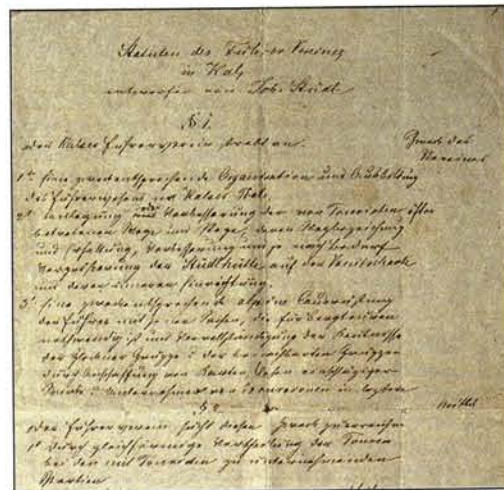 Statuten des Führer Vereines
in Kals
entworfen von Joh. Stüdl
§ 1.
Der Kalser Führerverein strebt an.
Zweck des
Vereines
1t. Eine zweckentsprechende Organisation und Ausbildung
des Führerwesens im Kalser Thale.
2t. Anlegung und Verbesserung der von Touristen öfter
betretenen Wege und Stege, deren Wegbezeichnung
und Erhaltung, Verbesserung und je nach Bedarf
Vergrößerung der Stüdlhütte auf der Vanitscharte
und deren innerer Einrichtung.
3t. Eine zweckentsprechende alpine Ausrüstung
der Führer mit jenen Sachen, die für Bergtouren
nothwendig ist und Vervollständigung der Kenntnisse
der Glockner Gruppe u. der benachbarten Gruppen
durch Anschaffung von Karten, Lesen einschlägiger
Werke u. Unternehmen von Excursionen in letztere
§ 2
Mittel
Der Führerverein sucht diesen Zweck zu erreichen
1t durch gleichförmige Vertheilung der Touren
bei den mit Touristen zu unternehmenden
Partien